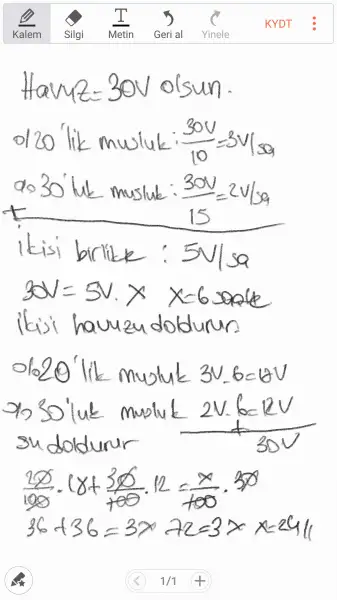 Kalem Silgi Metin Geri al Yinele KYDT
Havuz = 30V olsun.
%20'lik musluk : 30V/10 = 3V/sa
%30'luk musluk : 30V/15 = 2V/sa
+
ikisi birlikte : 5V/sa
30V = 5V. x x=6 saatte
ikisi havuzu doldurur.
%20'lik musluk 3V.6=18V
%30'luk musluk 2V.6=12V
+
su doldurur 30V
20/100 . 18 + 30/100 . 12 = x/100 . 30
36 + 36 = 3x 72 = 3x x=24//
1/1